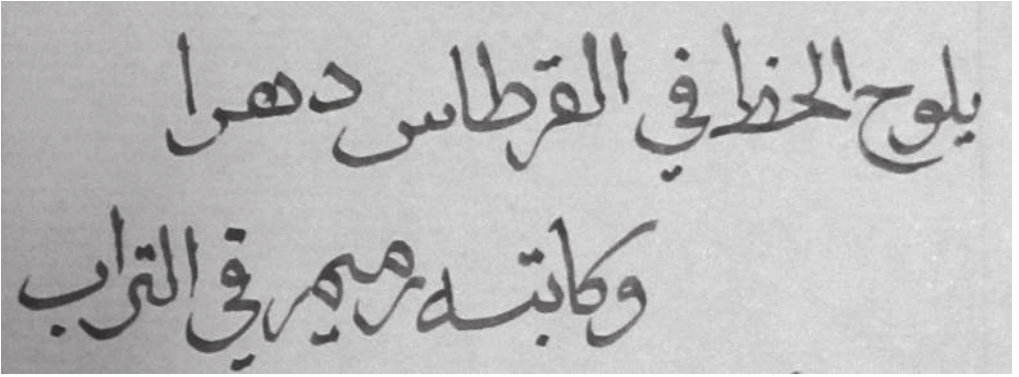 يلوح الخط في القرطاس دهرا
وكاتبه رميم في التراب